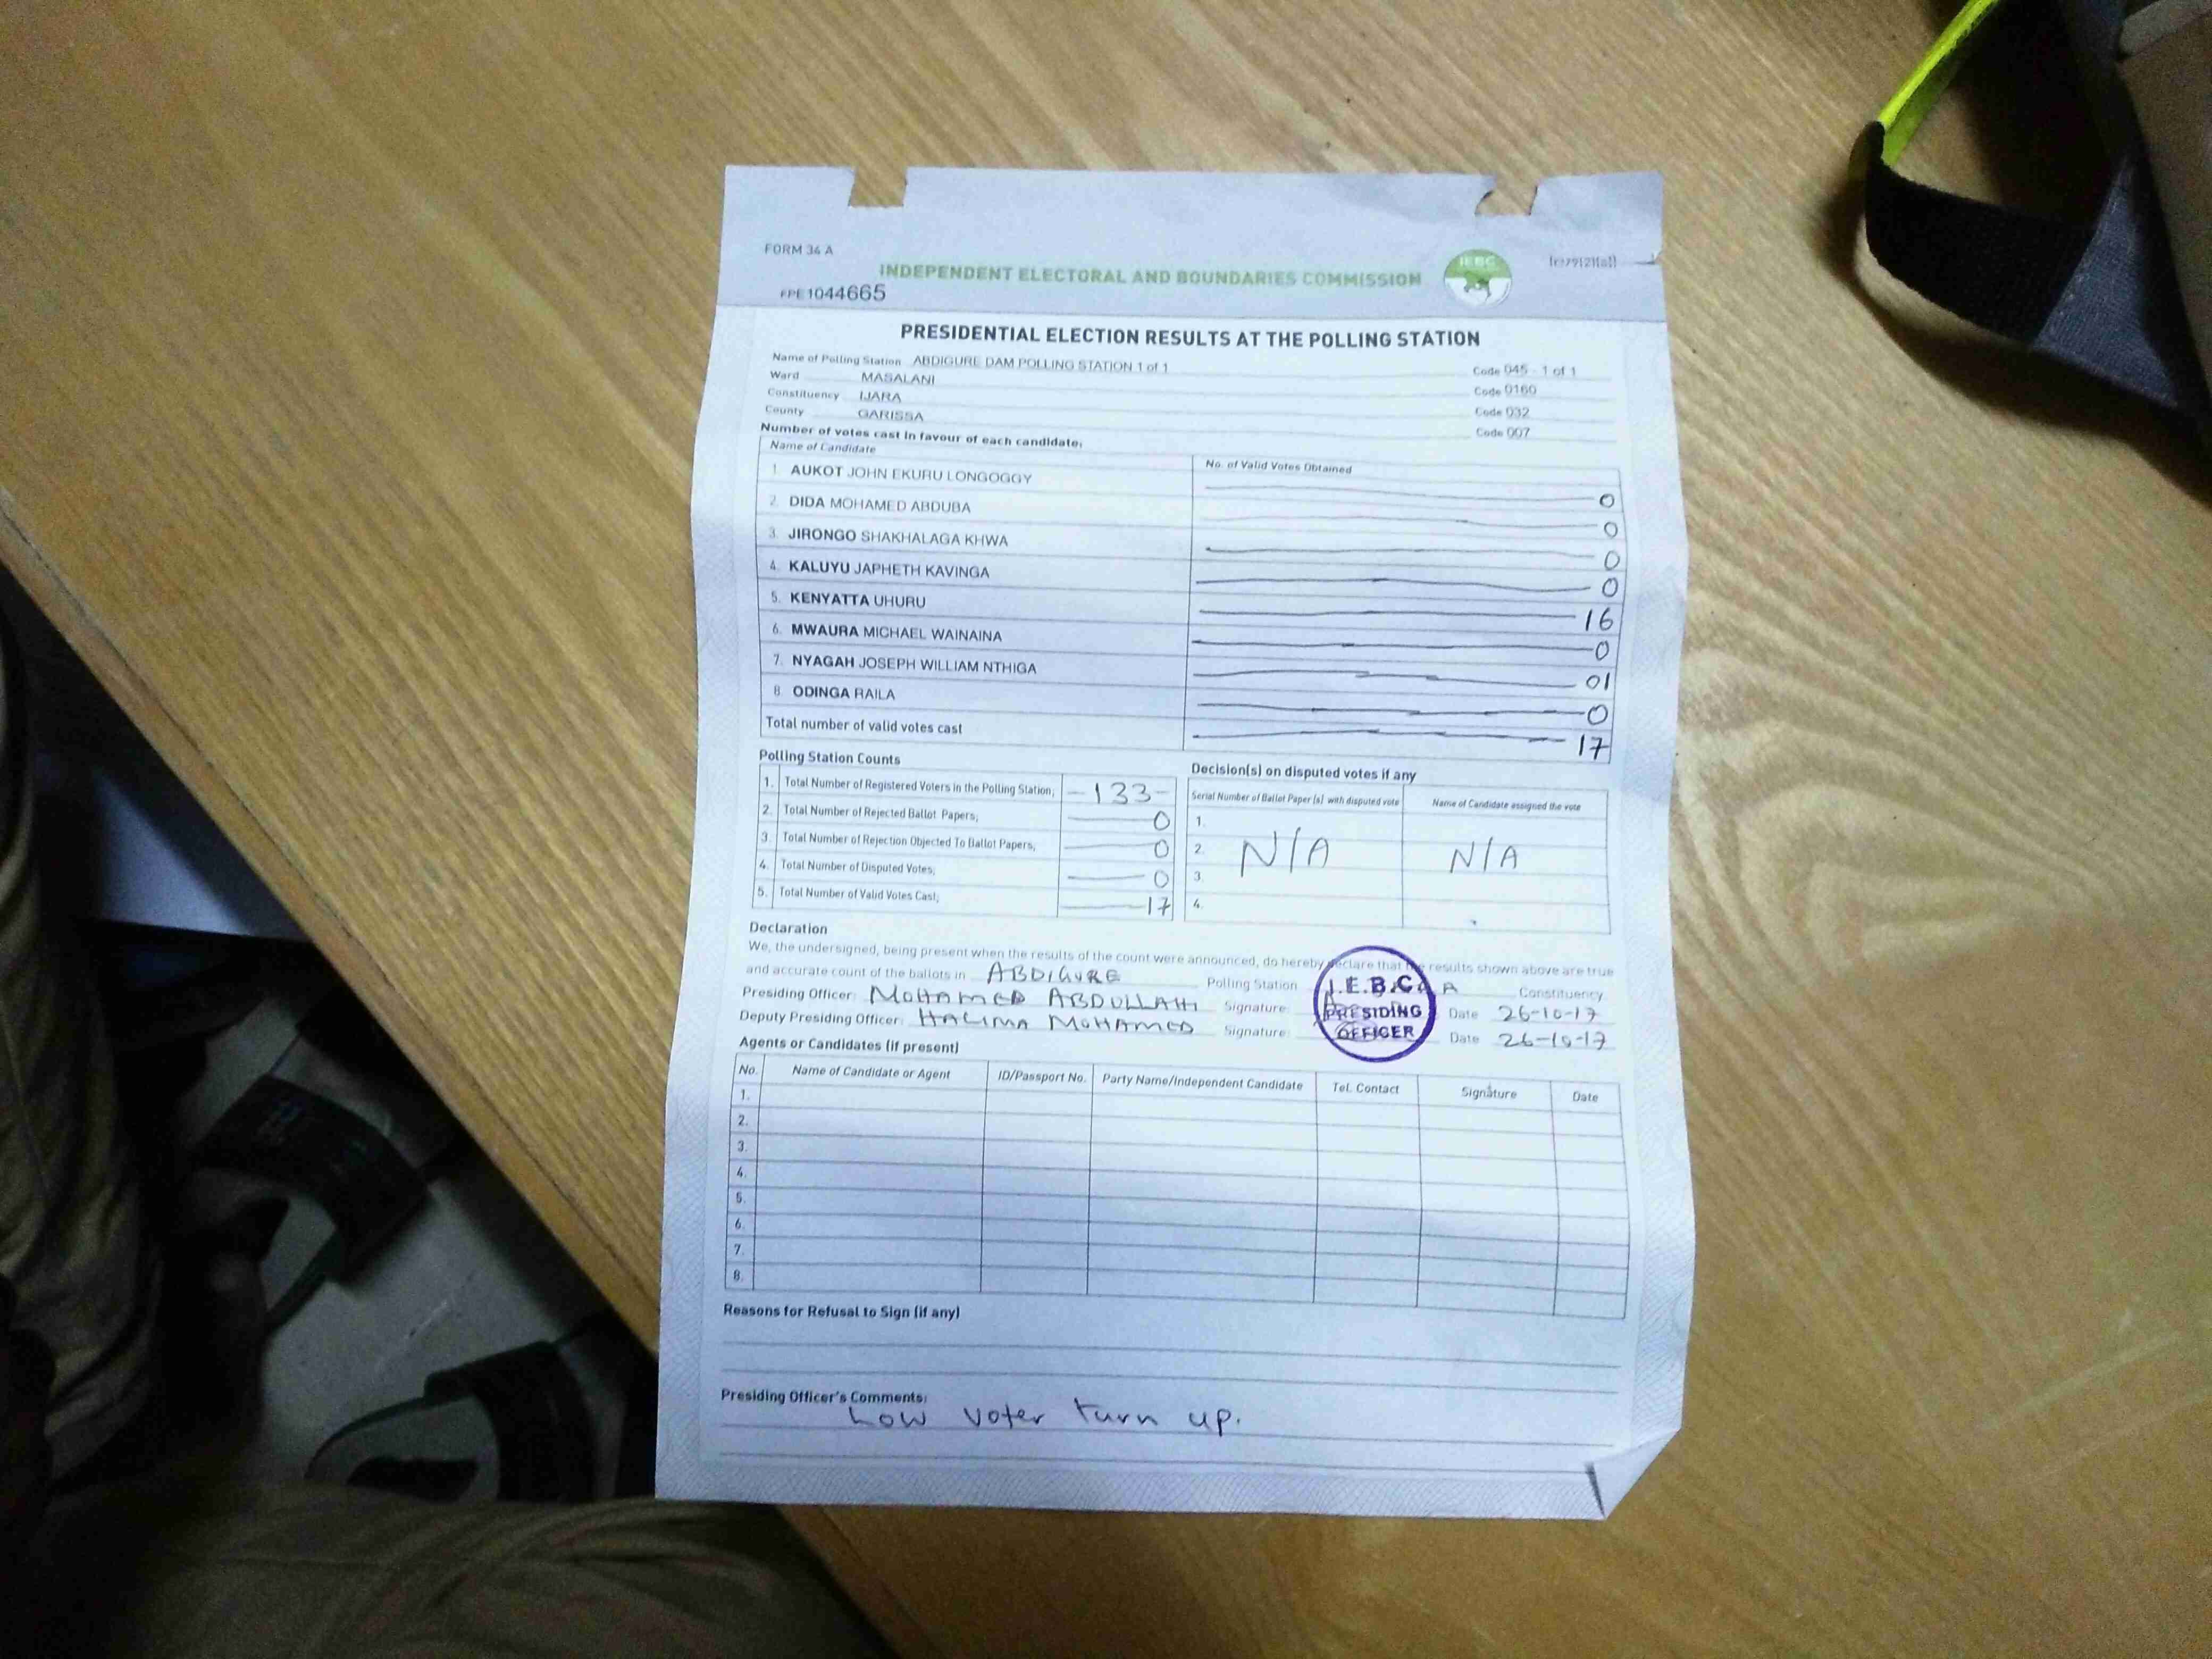 FORM 34 A
INDEPENDENT ELECTORAL AND BOUNDARIES COMMISSION
IEBC
FPE 1044665
PRESIDENTIAL ELECTION RESULTS AT THE POLLING STATION
Name of Polling Station ABDIGURE DAM POLLING STATION 1 of 1 Code 045 - 1 of 1
Ward MASALANI Code 0160
Constituency IJARA Code 032
County GARISSA Code 007
Number of votes cast in favour of each candidate;
Name of Candidate No. of Valid Votes Obtained
1. AUKOT JOHN EKURU LONGOGGY 0
2. DIDA MOHAMED ABDUBA 0
3. JIRONGO SHAKHALAGA KHWA 0
4. KALUYU JAPHETH KAVINGA 0
5. KENYATTA UHURU 16
6. MWAURA MICHAEL WAINAINA 0
7. NYAGAH JOSEPH WILLIAM NTHIGA 01
8. ODINGA RAILA 0
Total number of valid votes cast 17
Polling Station Counts
1. Total Number of Registered Voters in the Polling Station; -133-
2. Total Number of Rejected Ballot Papers; 0
3. Total Number of Rejection Objected To Ballot Papers; 0
4. Total Number of Disputed Votes; 0
5. Total Number of Valid Votes Cast; 17
Decision(s) on disputed votes if any
Serial Number of Ballot Paper (s) with disputed vote Name of Candidate assigned the vote
1.
2. N/A N/A
3.
4.
Declaration
We, the undersigned, being present when the results of the count were announced, do hereby declare that the results shown above are true
and accurate count of the ballots in ABDIGURE Polling Station Constituency
Presiding Officer: MOHAMED ABDULLAHI Signature: Date 26-10-17
Deputy Presiding Officer: HALIMA MOHAMED Signature: Date 26-10-17
I.E.B.C
PRESIDING
OFFICER
Agents or Candidates (if present)
No. Name of Candidate or Agent ID/Passport No. Party Name/Independent Candidate Tel. Contact Signature Date
1.
2.
3.
4.
5.
6.
7.
8.
Reasons for Refusal to Sign (if any)
Presiding Officer's Comments:
Low voter turn up.